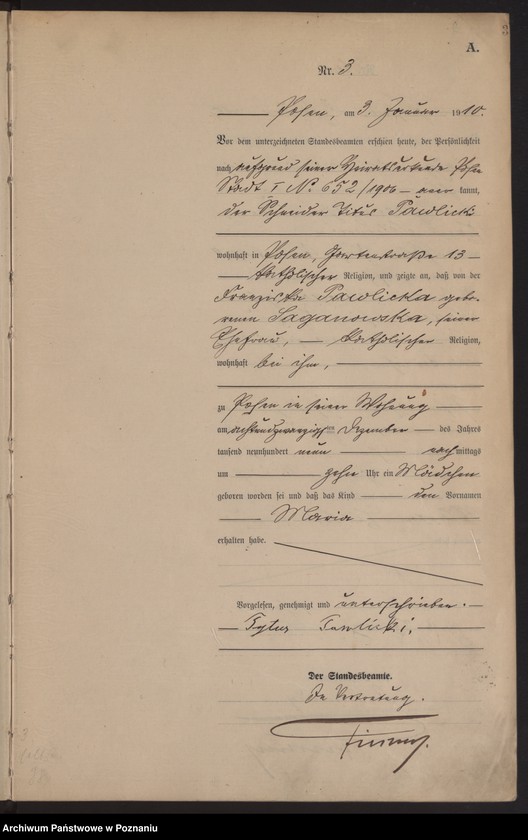 A.
Nr. 3.
Posen, am 3. Januar 1910.
Vor dem unterzeichneten Standesbeamten erschien heute, der Persönlichkeit
nach, aufgrund seiner Heiratsurkunde Posen
Stadt I No 652/1906 – aner kannt,
der Schneider Titus Pawlicki
wohnhaft in Posen, Gartenstraße 13
katholischer Religion, und zeigte an, daß von der
Franziska Pawlicka gebo-
renen Saganowska, seiner
Ehefrau, katholischer Religion,
wohnhaft bei ihm,
zu Posen in seiner Wohnung
am achtundzwanzigsten Dezember des Jahres
tausend neunhundert neun nachmittags
um zehn Uhr ein Mädchen
geboren worden sei und daß das Kind den Vornamen
Maria
erhalten habe.
Vorgelesen, genehmigt und unterschrieben.
Tytus Pawlicki.
Der Standesbeamte.
In Vertretung.
Archiwum Państwowe w Poznaniu